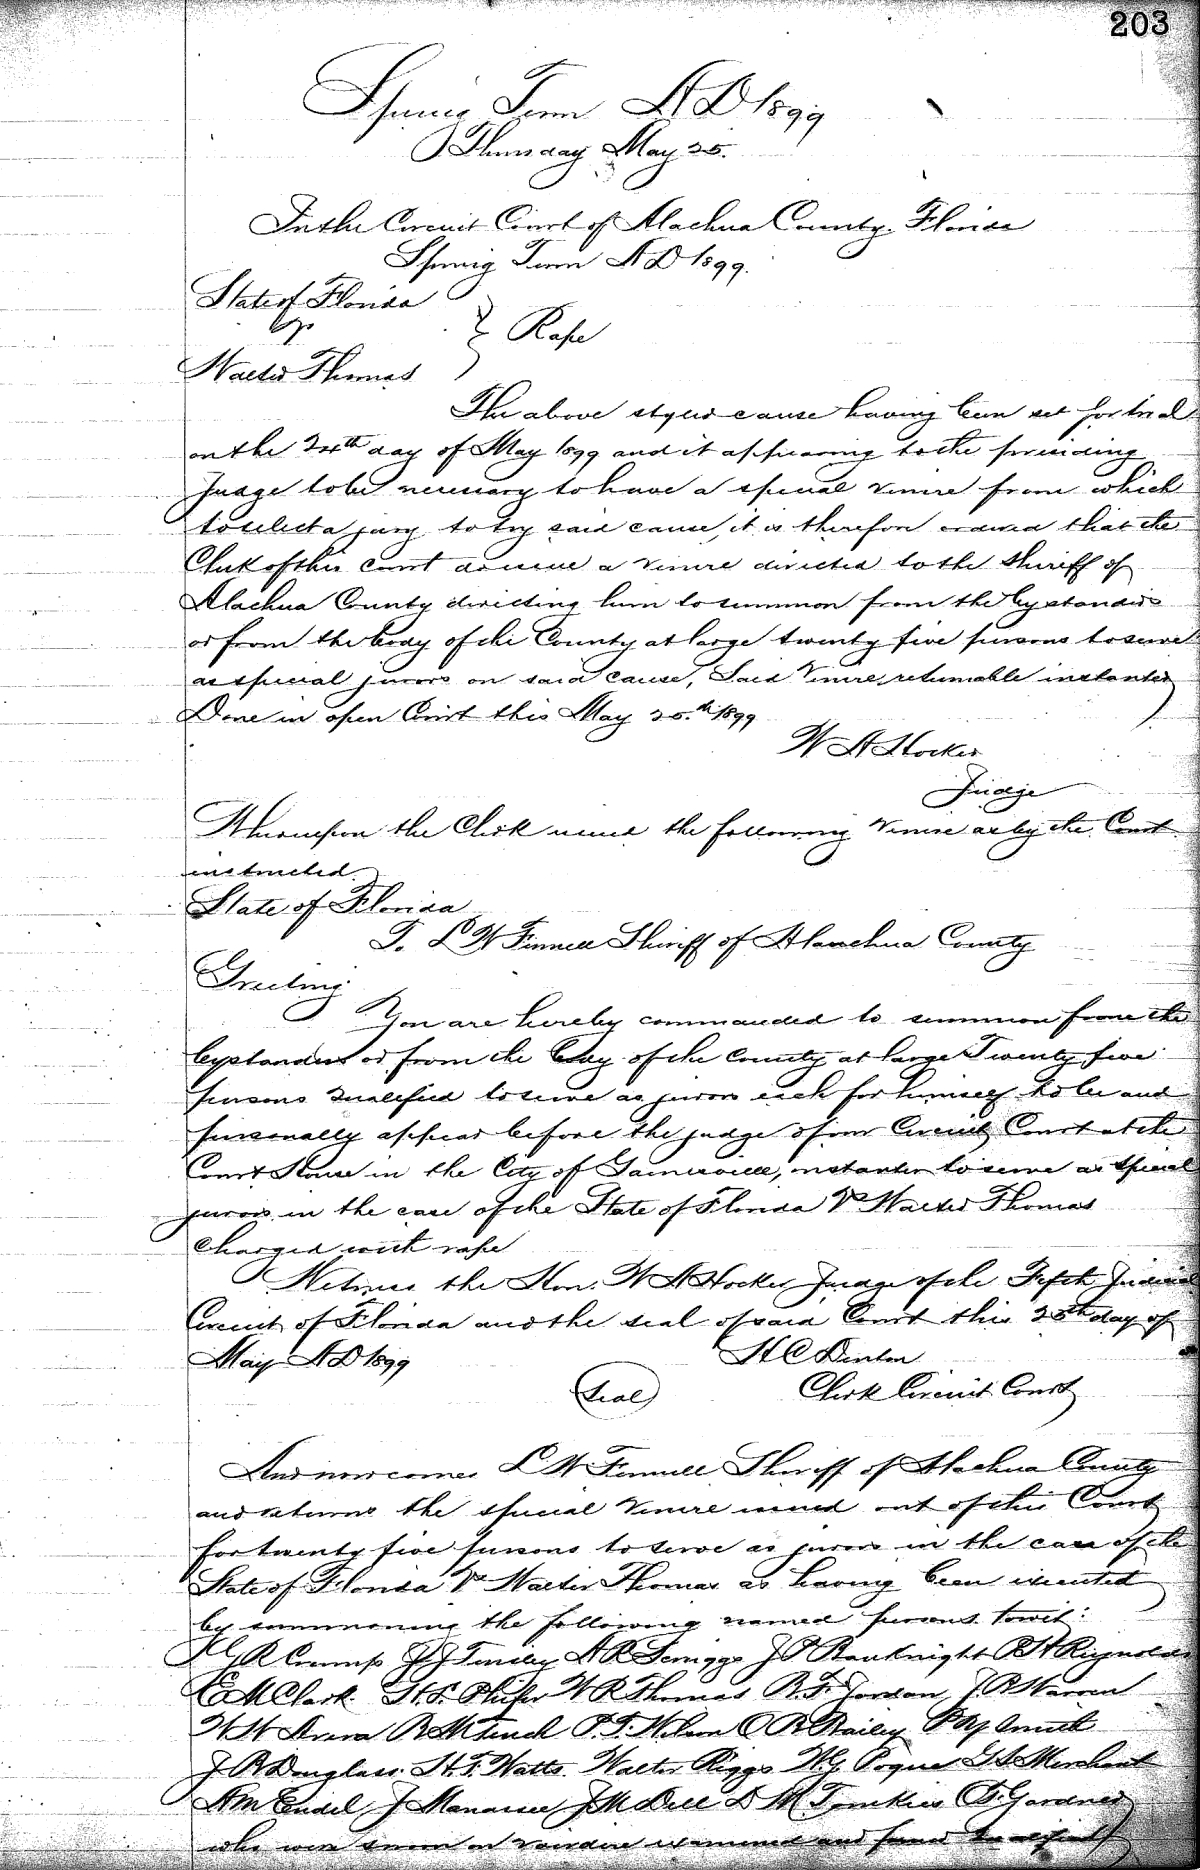 203
Spring Term A D 1899
Thursday May 25.
In the Circuit Court of Alachua County. Florida
Spring Term A D 1899.
State of Florida
vs } Rape
Walter Thomas
The above styled cause having been set for trial
on the 24th day of May 1899 and it appearing to the presiding
Judge to be necessary to have a special venire from which
to select a jury to try said cause, it is therefore ordered that the
Clerk of this court do issue a venire directed to the Sheriff of
Alachua County directing him to summon from the bystanders
or from the body of the County at large twenty five persons to serve
as special jurors on said cause, Said Venire, returnable instanter
Done in open Court this May 25.th 1899
W A Hocker
Judge
Whereupon the Clerk issued the following Venire as by the Court
instructed.
State of Florida
To L W Fennell Sheriff of Alauchua County
Greeting.
You are hereby commanded to summon from the
bystanders or from the body of the County at large Twenty five
persons qualified to serve as jurors each for himself to be and
personally appear before the judge of our Circuit Court at the
Court House in the City of Gainesville, instanter to serve as special
jurors in the case of the State of Florida Vs Walter Thomas
Charged with rape
Witness the Hon. W A Hocker Judge of the Fifth Judicial
Circuit of Florida and the seal of said Court this 25th day of
May A D 1899 H C Denton
(Seal) Clerk Circuit Court
And now comes L W Fennell Sheriff of Alachua County
and returns the special Venire issued out of this Court
for twenty five persons to serve as jurors in the case of the
State of Florida Vs Walter Thomas as having been executed
by summoning the following named persons. towit:
R Crump J J Tinsley A R Scruggs J P Bauknight R H Reynolds
C M Clark. H. F. Phifer W R Thomas R. F. Jordan, J. R Warren
W H R M French P. F. Wilson O R Bailey Smith
J R Douglass. H. F. Watts. Walter Riggs W. G. Pogue G S Merchant
A M Endel, J Manassee, J M Dell D M Tomkies Gardner
who were sworn on voirdire examined and found qualified